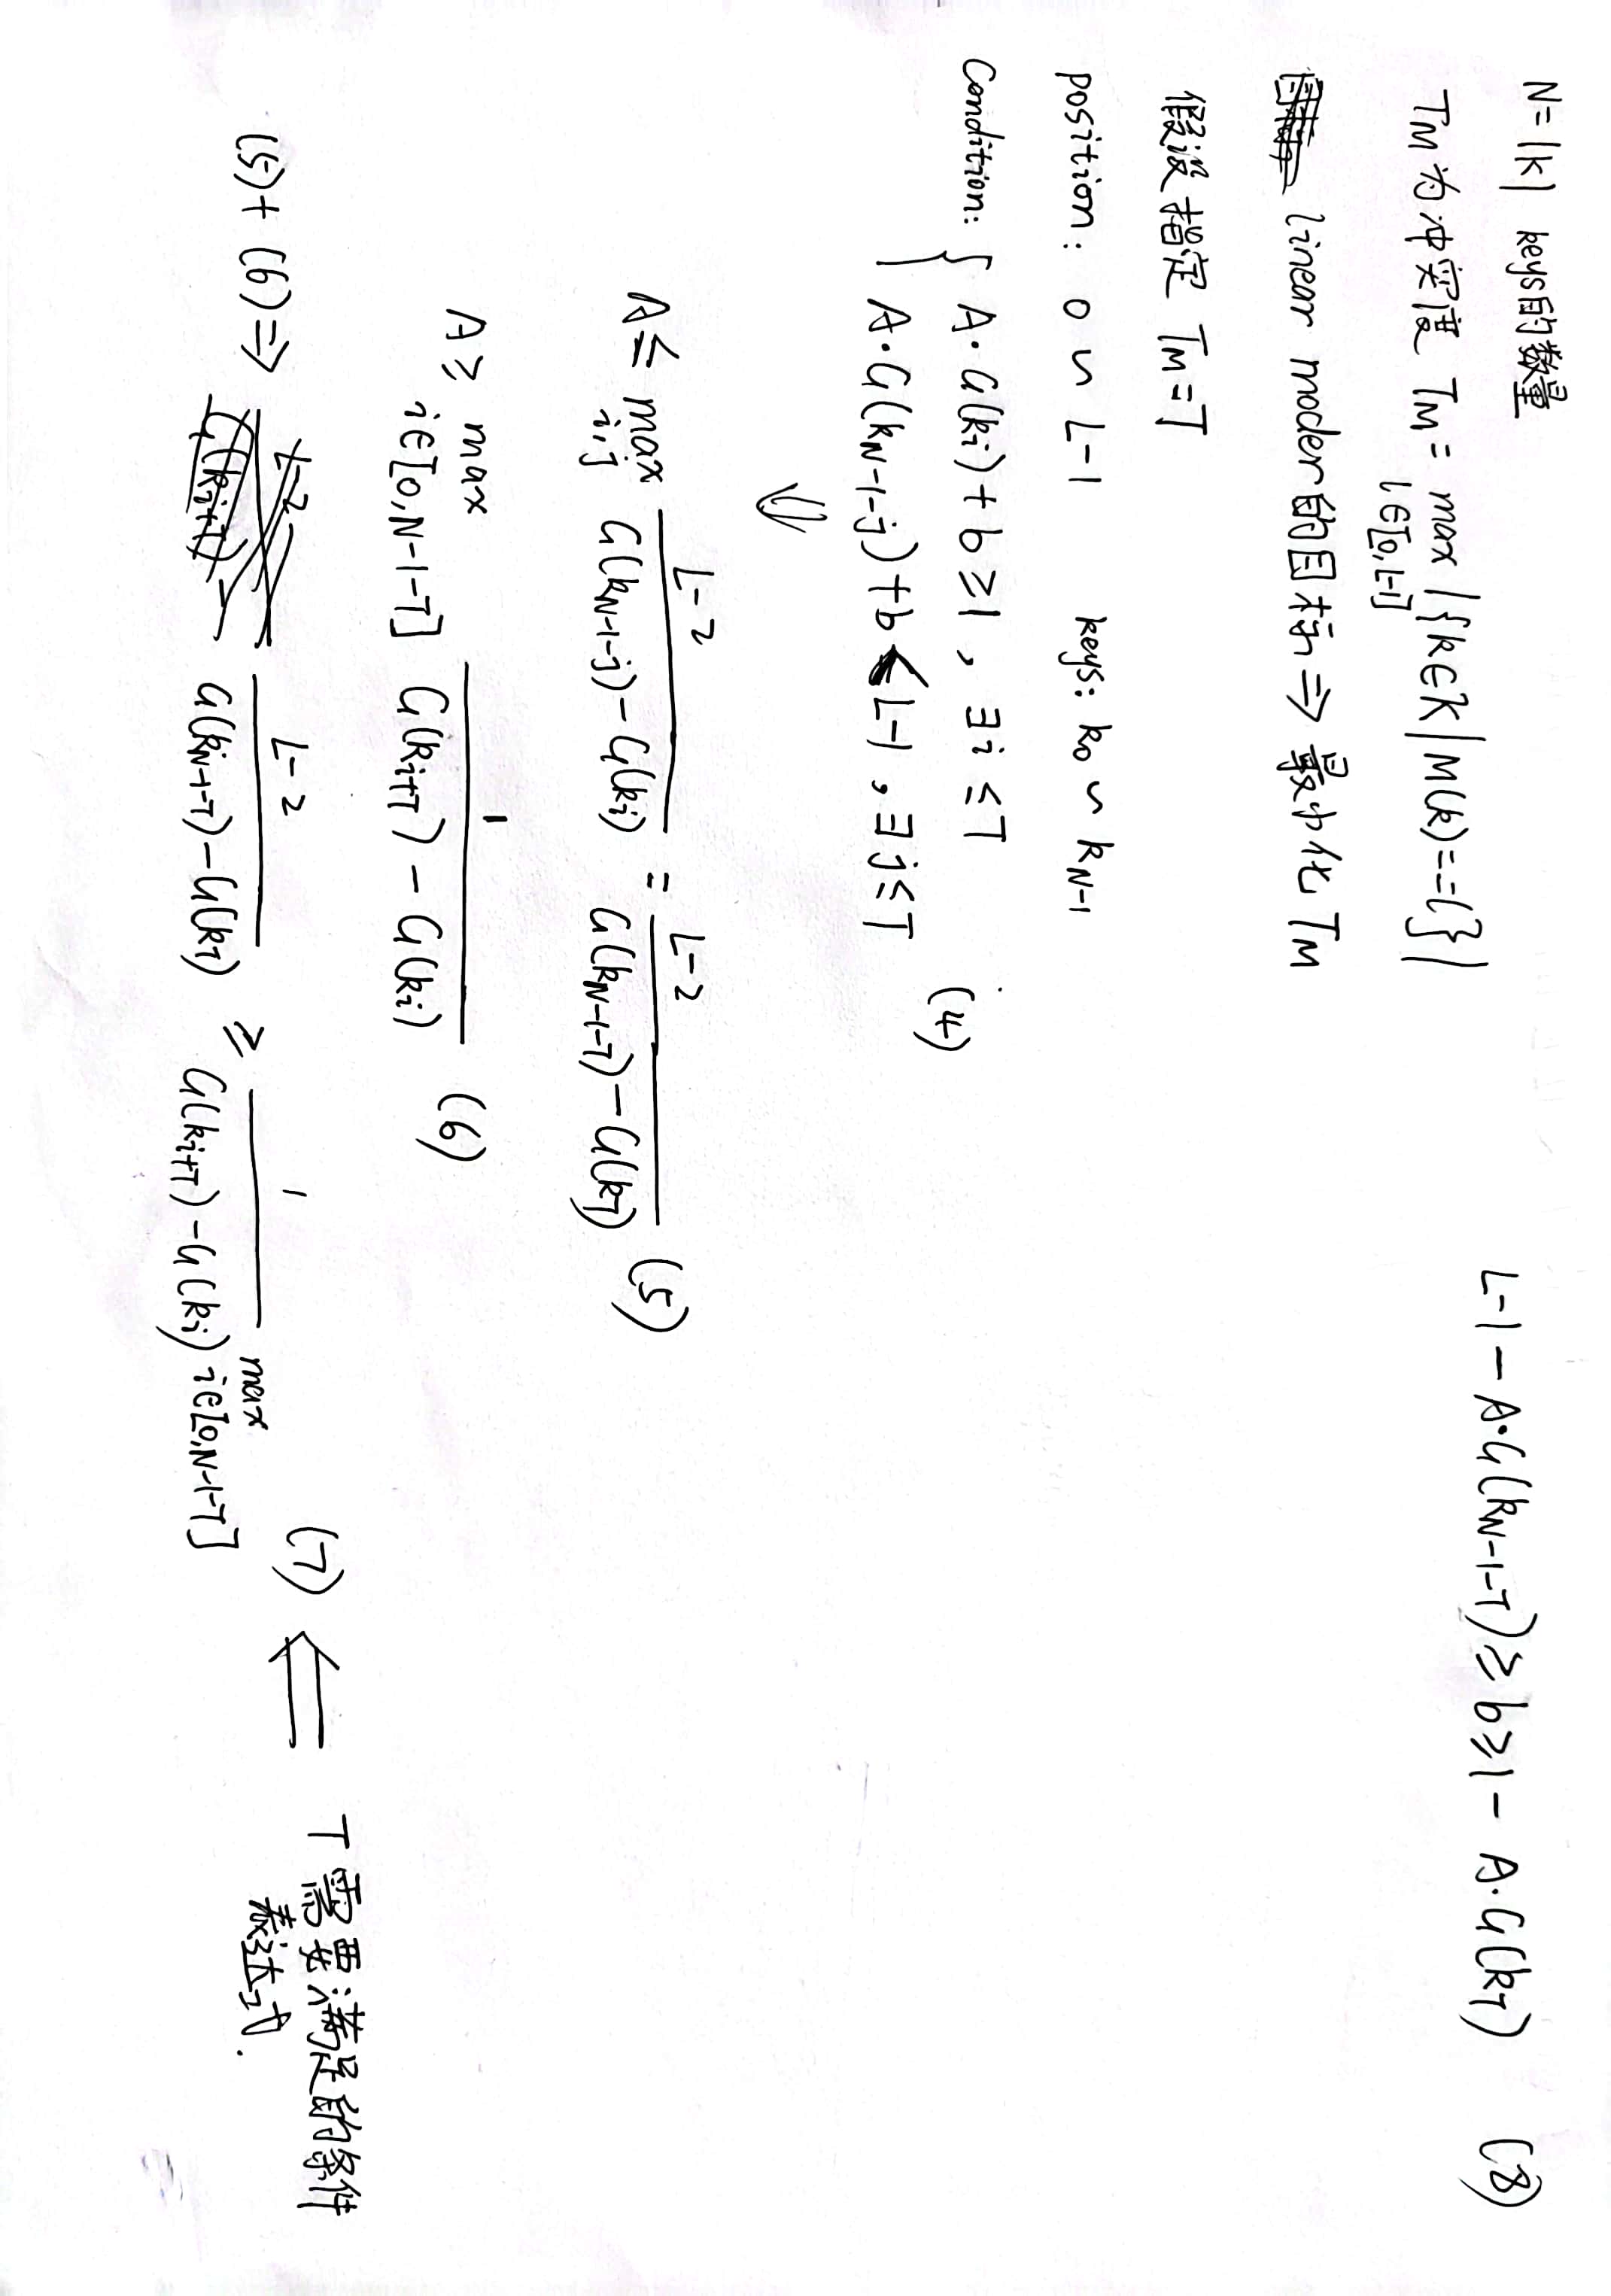 N=|K| keys的数量
TM为冲突度 TM = max |{k∈K | M(k)==l}|
l∈[0,L-1]
linear model的目标 ⇒ 最小化 TM
假设指定 TM=T
position: 0 ~ L-1 keys: k0 ~ kN-1
Condition: { A·G(ki)+b≥1, ∃i≤T
A·G(kN-1-j)+b≤L-1, ∃j≤T (4)
⇓
A ≤ max i,j (L-2)/(G(kN-1-j)-G(ki)) = (L-2)/(G(kN-1-T)-G(kT)) (5)
A ≥ max i∈[0,N-1-T] 1/(G(ki+T)-G(ki)) (6)
(5)+(6)⇒ (L-2)/(G(kN-1-T)-G(kT)) ≥ 1/(G(ki+T)-G(ki)) max i∈[0,N-1-T] (7) ⇐ T需要满足的条件
表达式.
L-1-A·G(kN-1-T)≥b≥1-A·G(kT) (8)